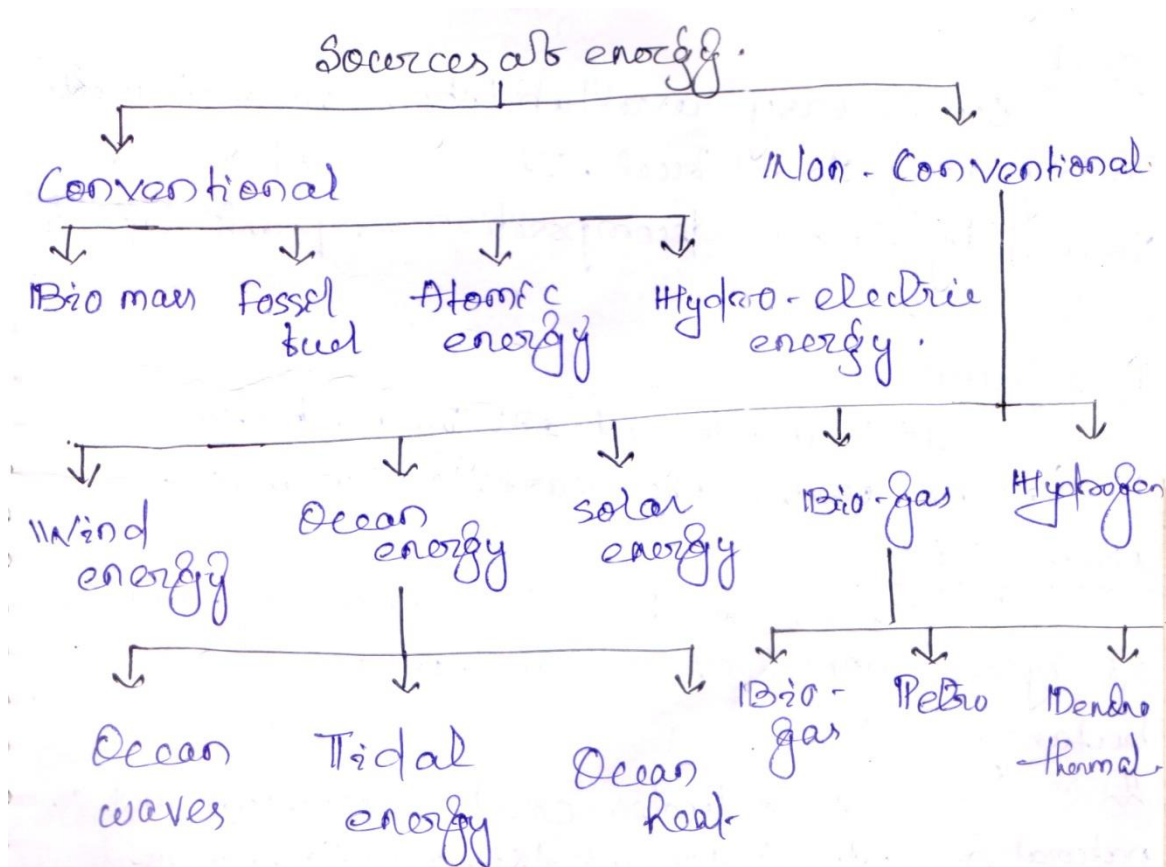 Sources of energy.
Conventional
Non - Conventional.
Bio mass
Fossil
fuel
Atomic
energy
Hydro - electric
energy.
Wind
energy
Ocean
energy
Solar
energy
Bio - gas
Hydrogen
Ocean
waves
Tidal
energy
Ocean
heat
Bio -
gas
Petro
Dendro
thermal.